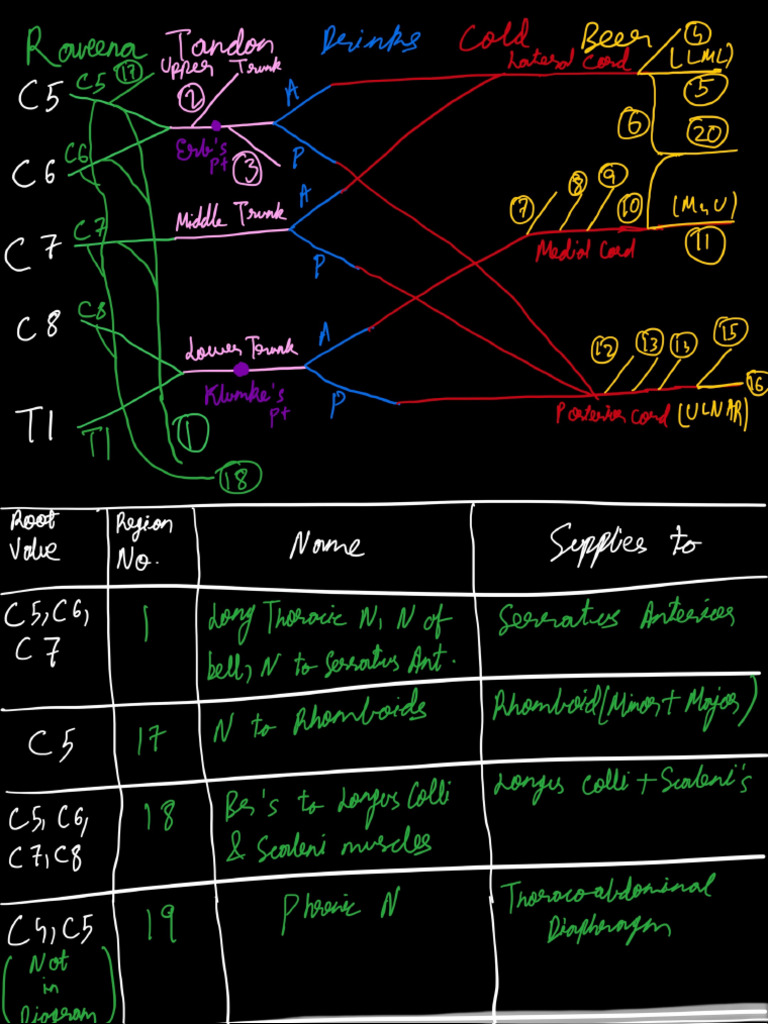 Raveena Tandon Drinks Cold Beer
C5 C5 17 Upper Trunk A Lateral Cord 4 (LLML)
2 5
Erb's pt 3 P 6 20
C6 C6
A 7 8 9 10 (M4U)
C7 C7 Middle Trunk Medial Cord 11
P
C8 C8 A 12 13 13 15
Lower Trunk 16
Klumke's pt P Posterior cord (ULNAR)
T1 T1 1
18
Root Value
Region No.
Name
Supplies to
C5, C6, C7
1
Long Thoracic N, N of
bell, N to Serratus Ant.
Serratus Anterior
C5
17
N to Rhomboids
Rhomboid (Minor + Major)
C5, C6,
C7, C8
18
Br's to Longus Colli
& Scaleni muscles
Longus colli + Scaleni's
C4, C5
(Not
in
Diagram)
19
Phrenic N
Thoracoabdominal
Diaphragm